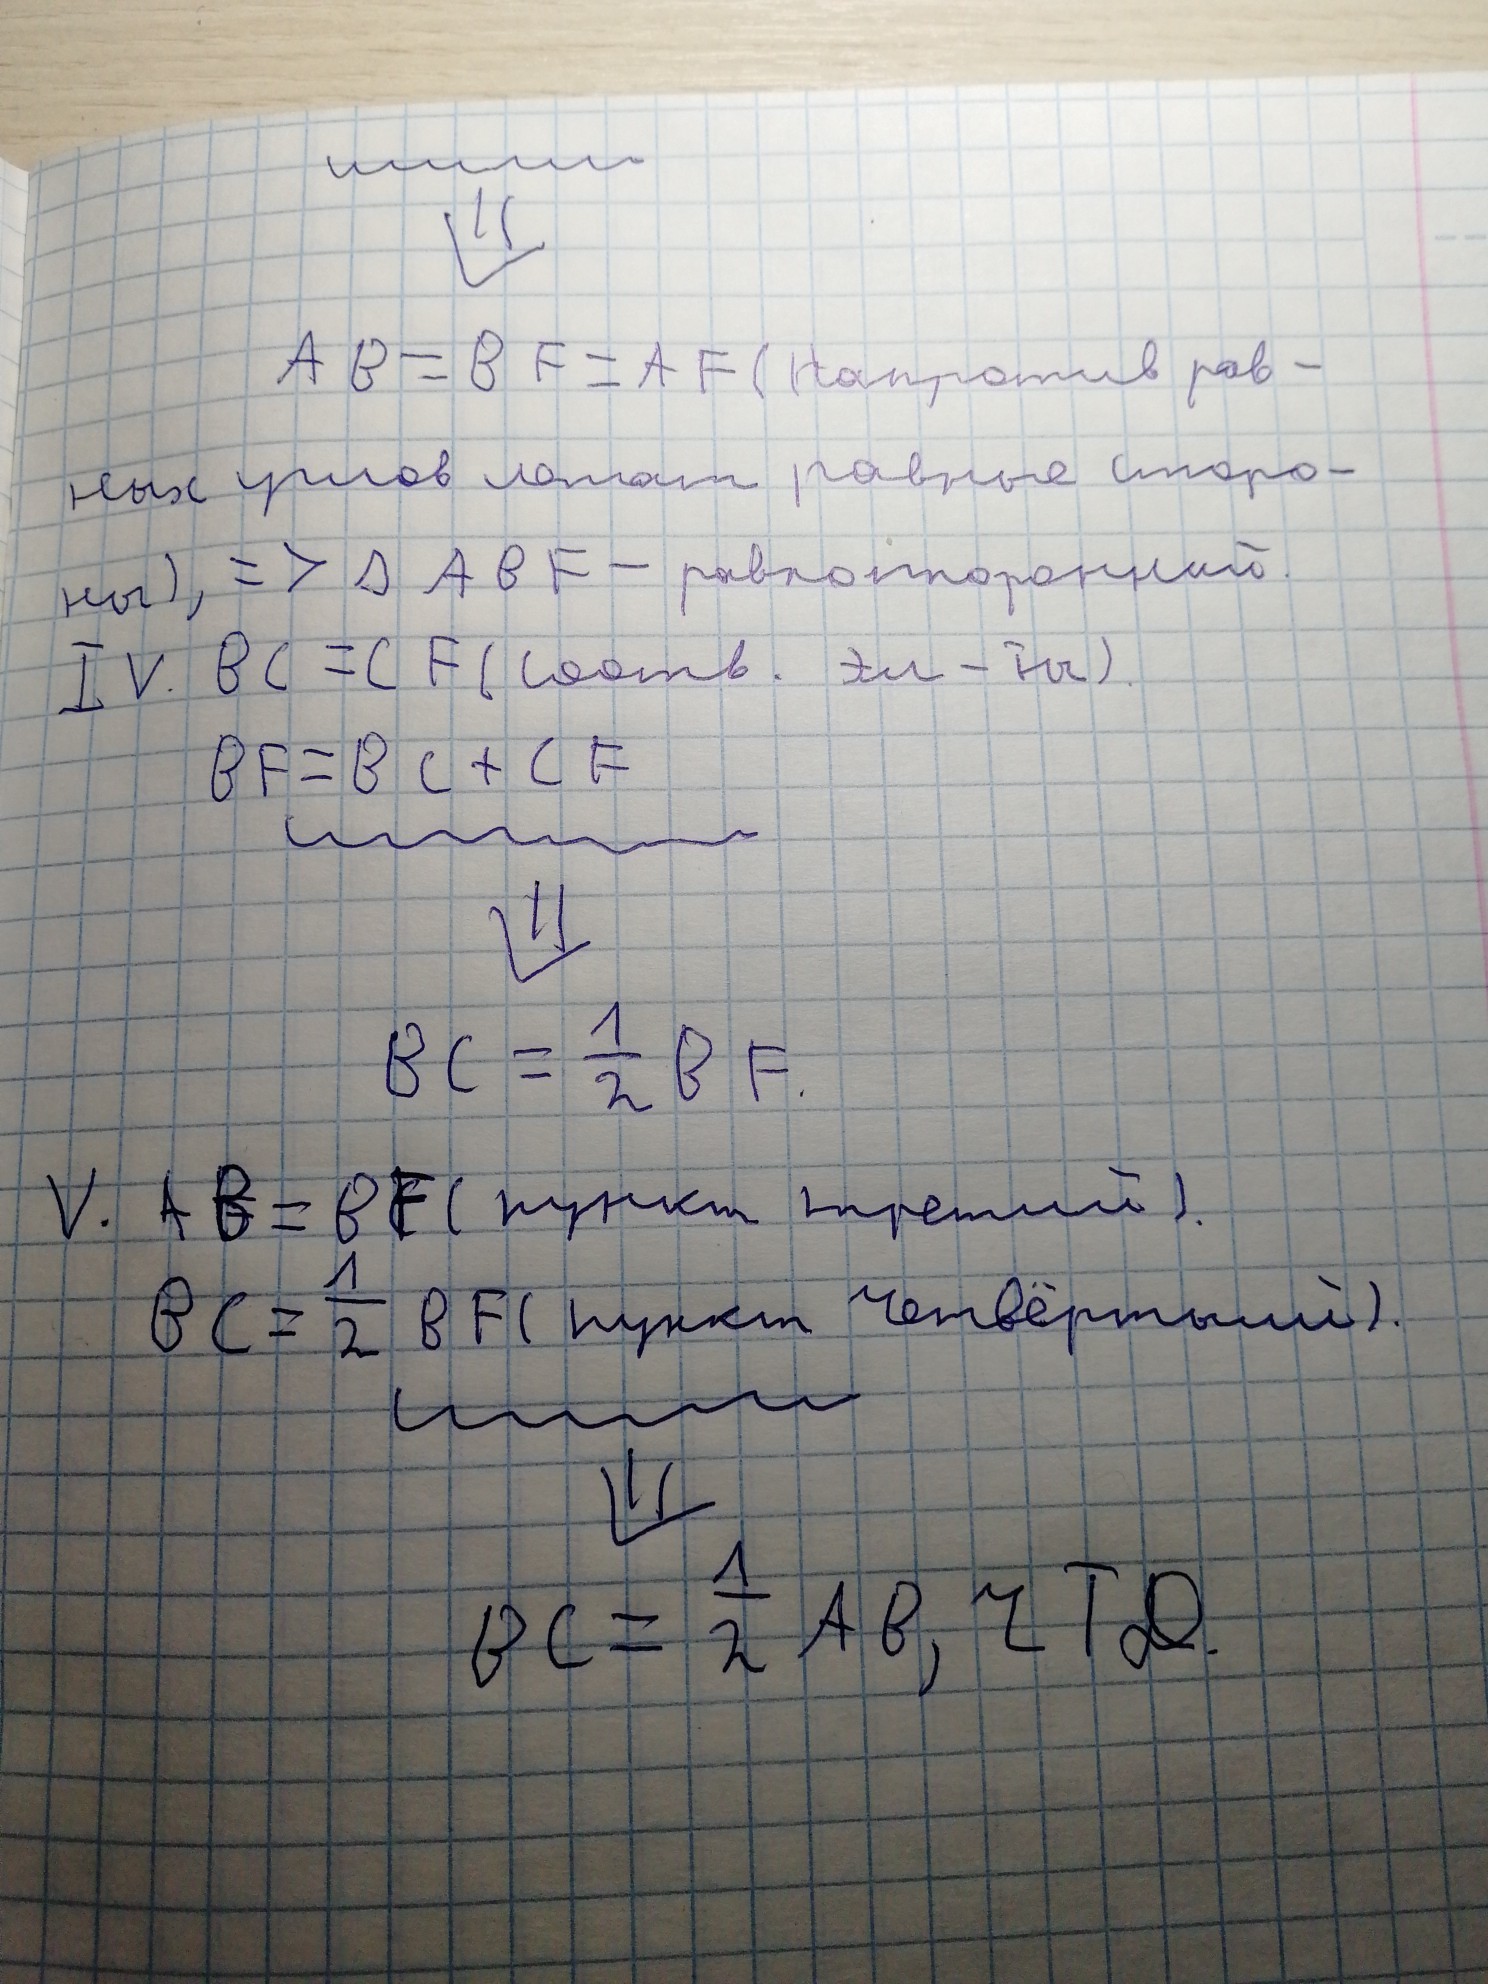 AB=BF=AF(Напротив рав-
ных углов лежат равные сторо-
ны), => Δ ABF - равносторонний.
IV. BC=CF(соотв. эл-ты).
BF=BC+CF
⇓
BC = 1/2 BF.
V. AB=BF(пункт третий).
BC=1/2 BF(пункт четвёртый).
⇓
BC=1/2 AB, ЧТД.